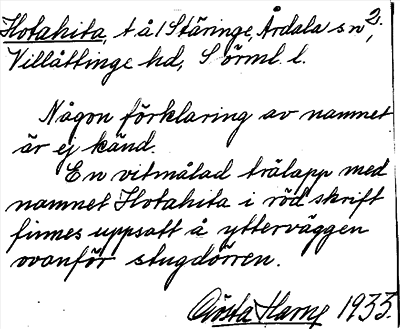 2.
Hotahita, t å/ Stäringe, Årdala sn,
Villåttinge hd, Sörml. l.
Någon förklaring av namnet
är ej känd.
En vitmålad trälapp med
namnet Hotahita i röd skrift
finnes uppsatt å ytterväggen
ovanför stugdörren.
Gösta Harne 1933.